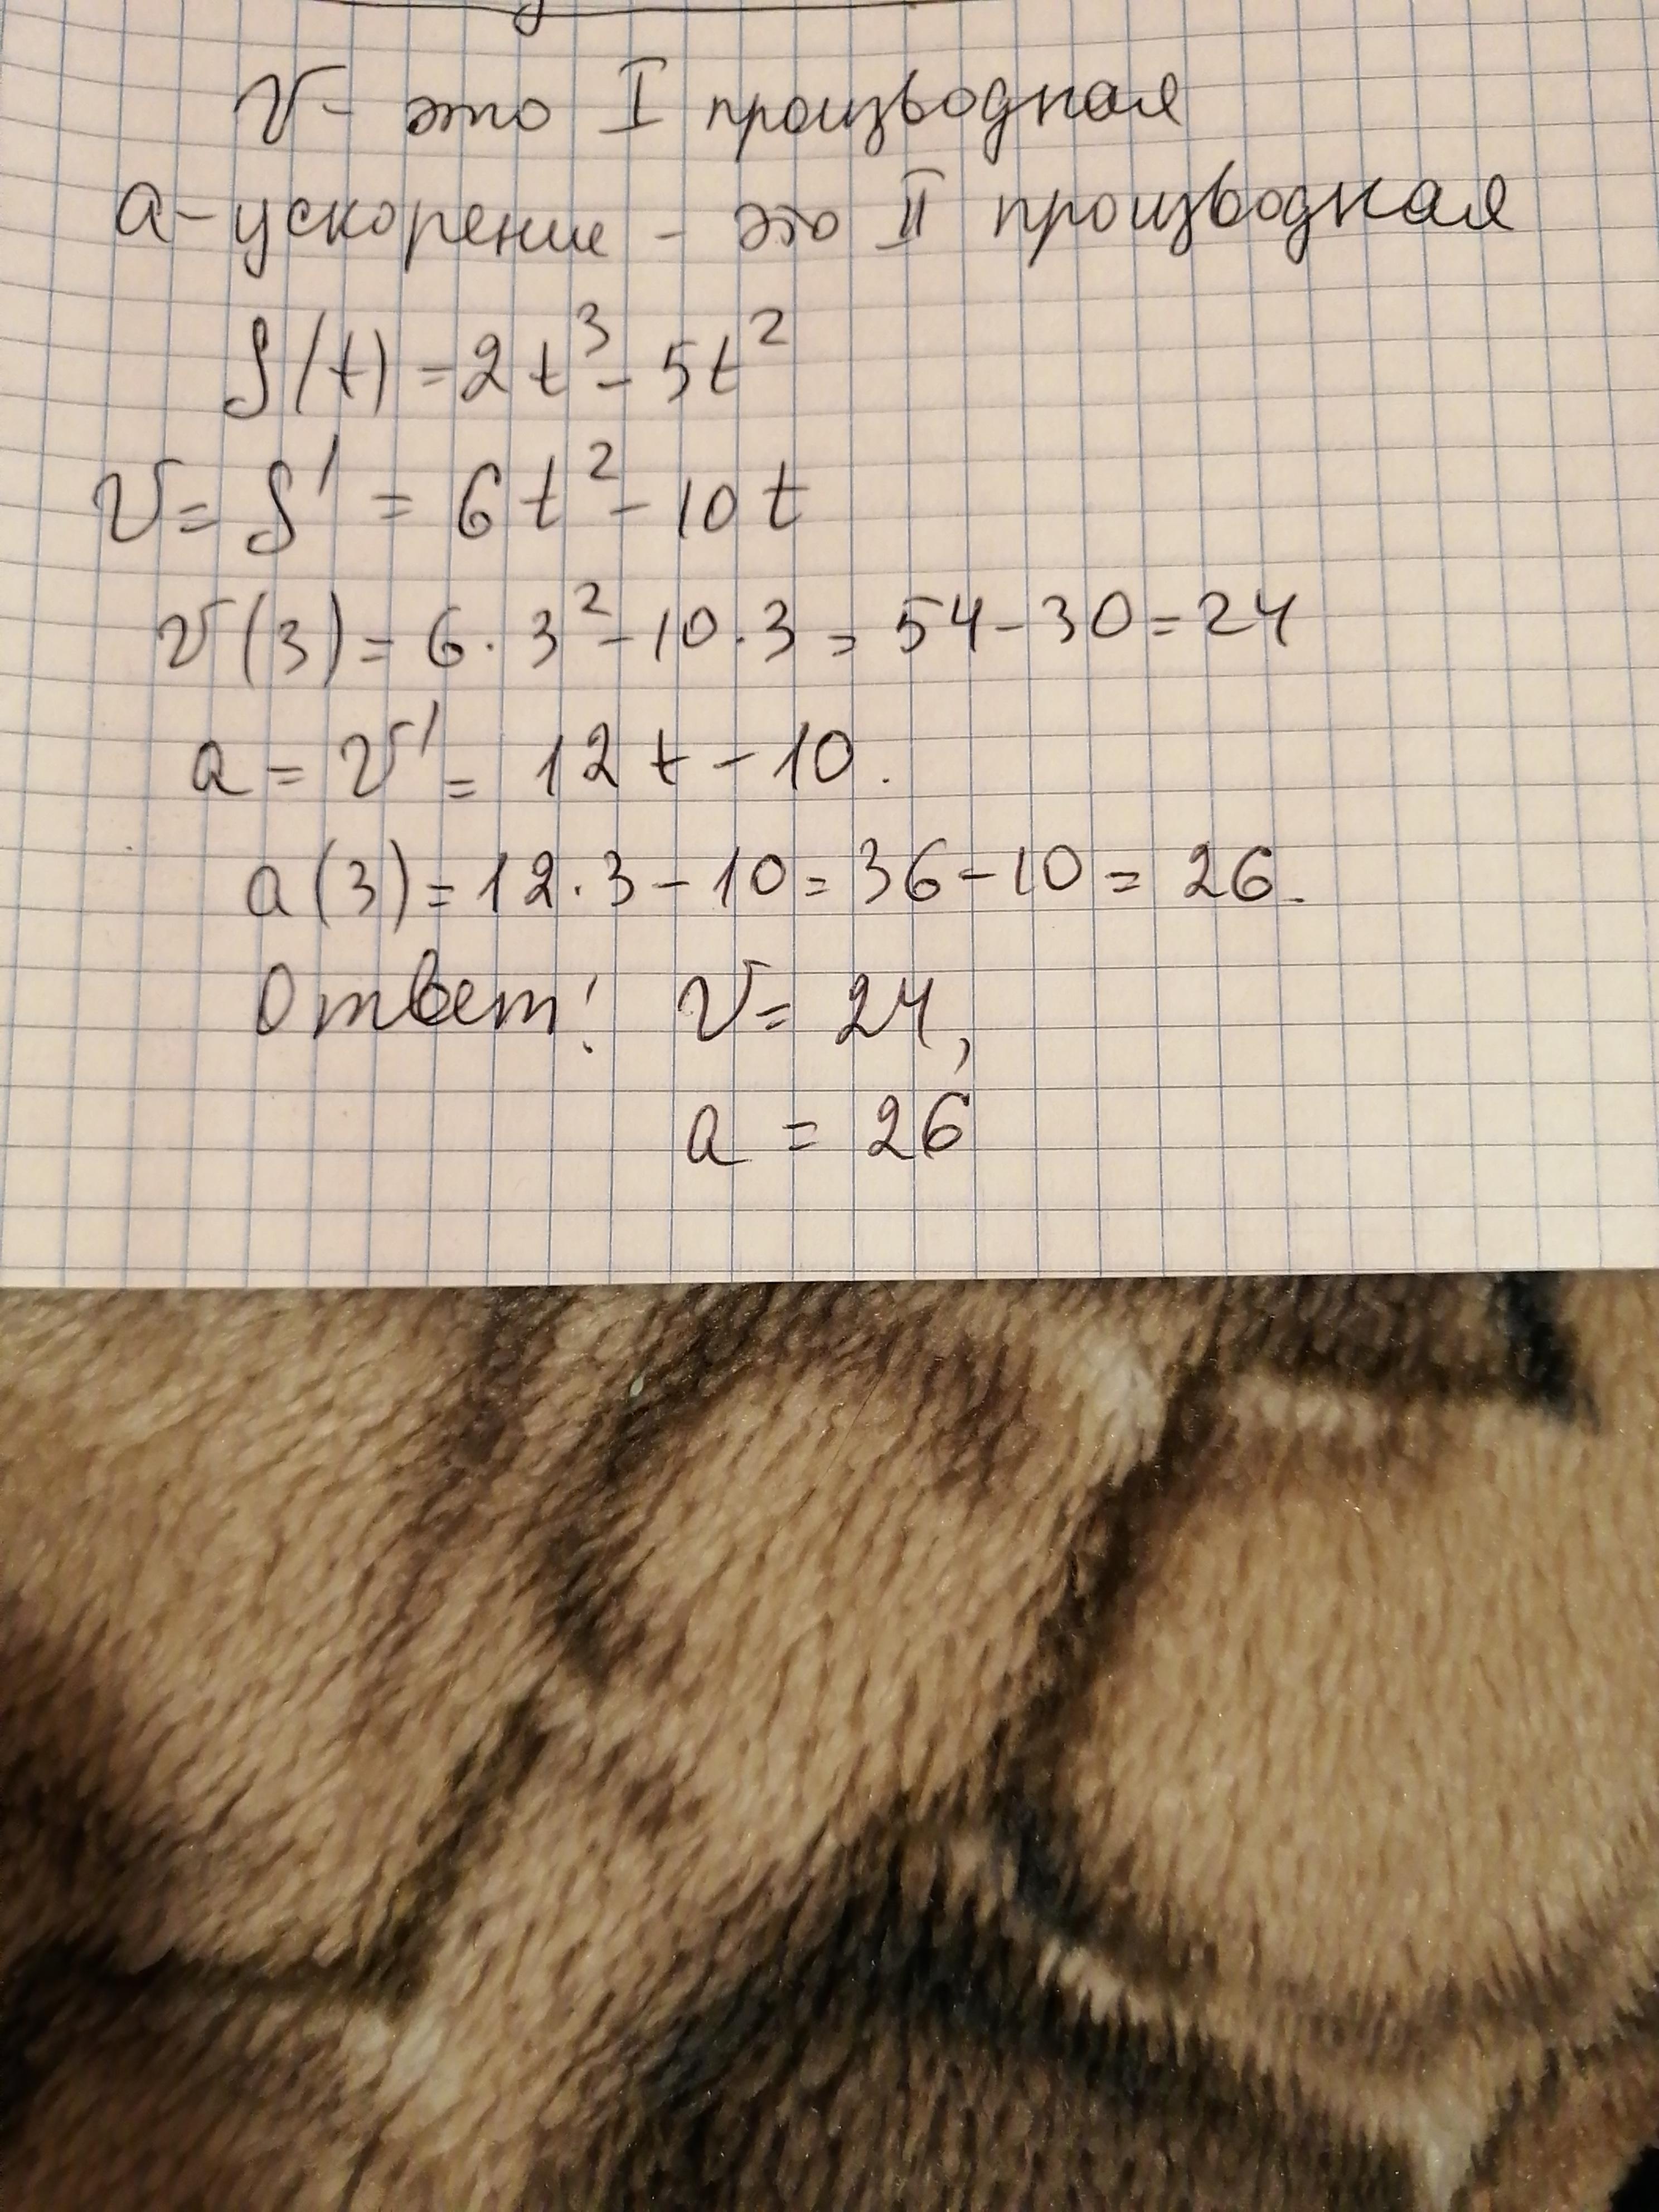 V- это I производная
a-ускорение - это II производная
S(t) = 2t³ - 5t²
V = S' = 6t² - 10t
V(3) = 6 · 3² - 10 · 3 = 54 - 30 = 24
a = V' = 12t - 10.
a(3) = 12 · 3 - 10 = 36 - 10 = 26.
Ответ: V = 24,
a = 26